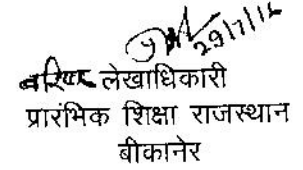 29/7/16
वरिष्ठ लेखाधिकारी
प्रारंभिक शिक्षा राजस्थान
बीकानेर